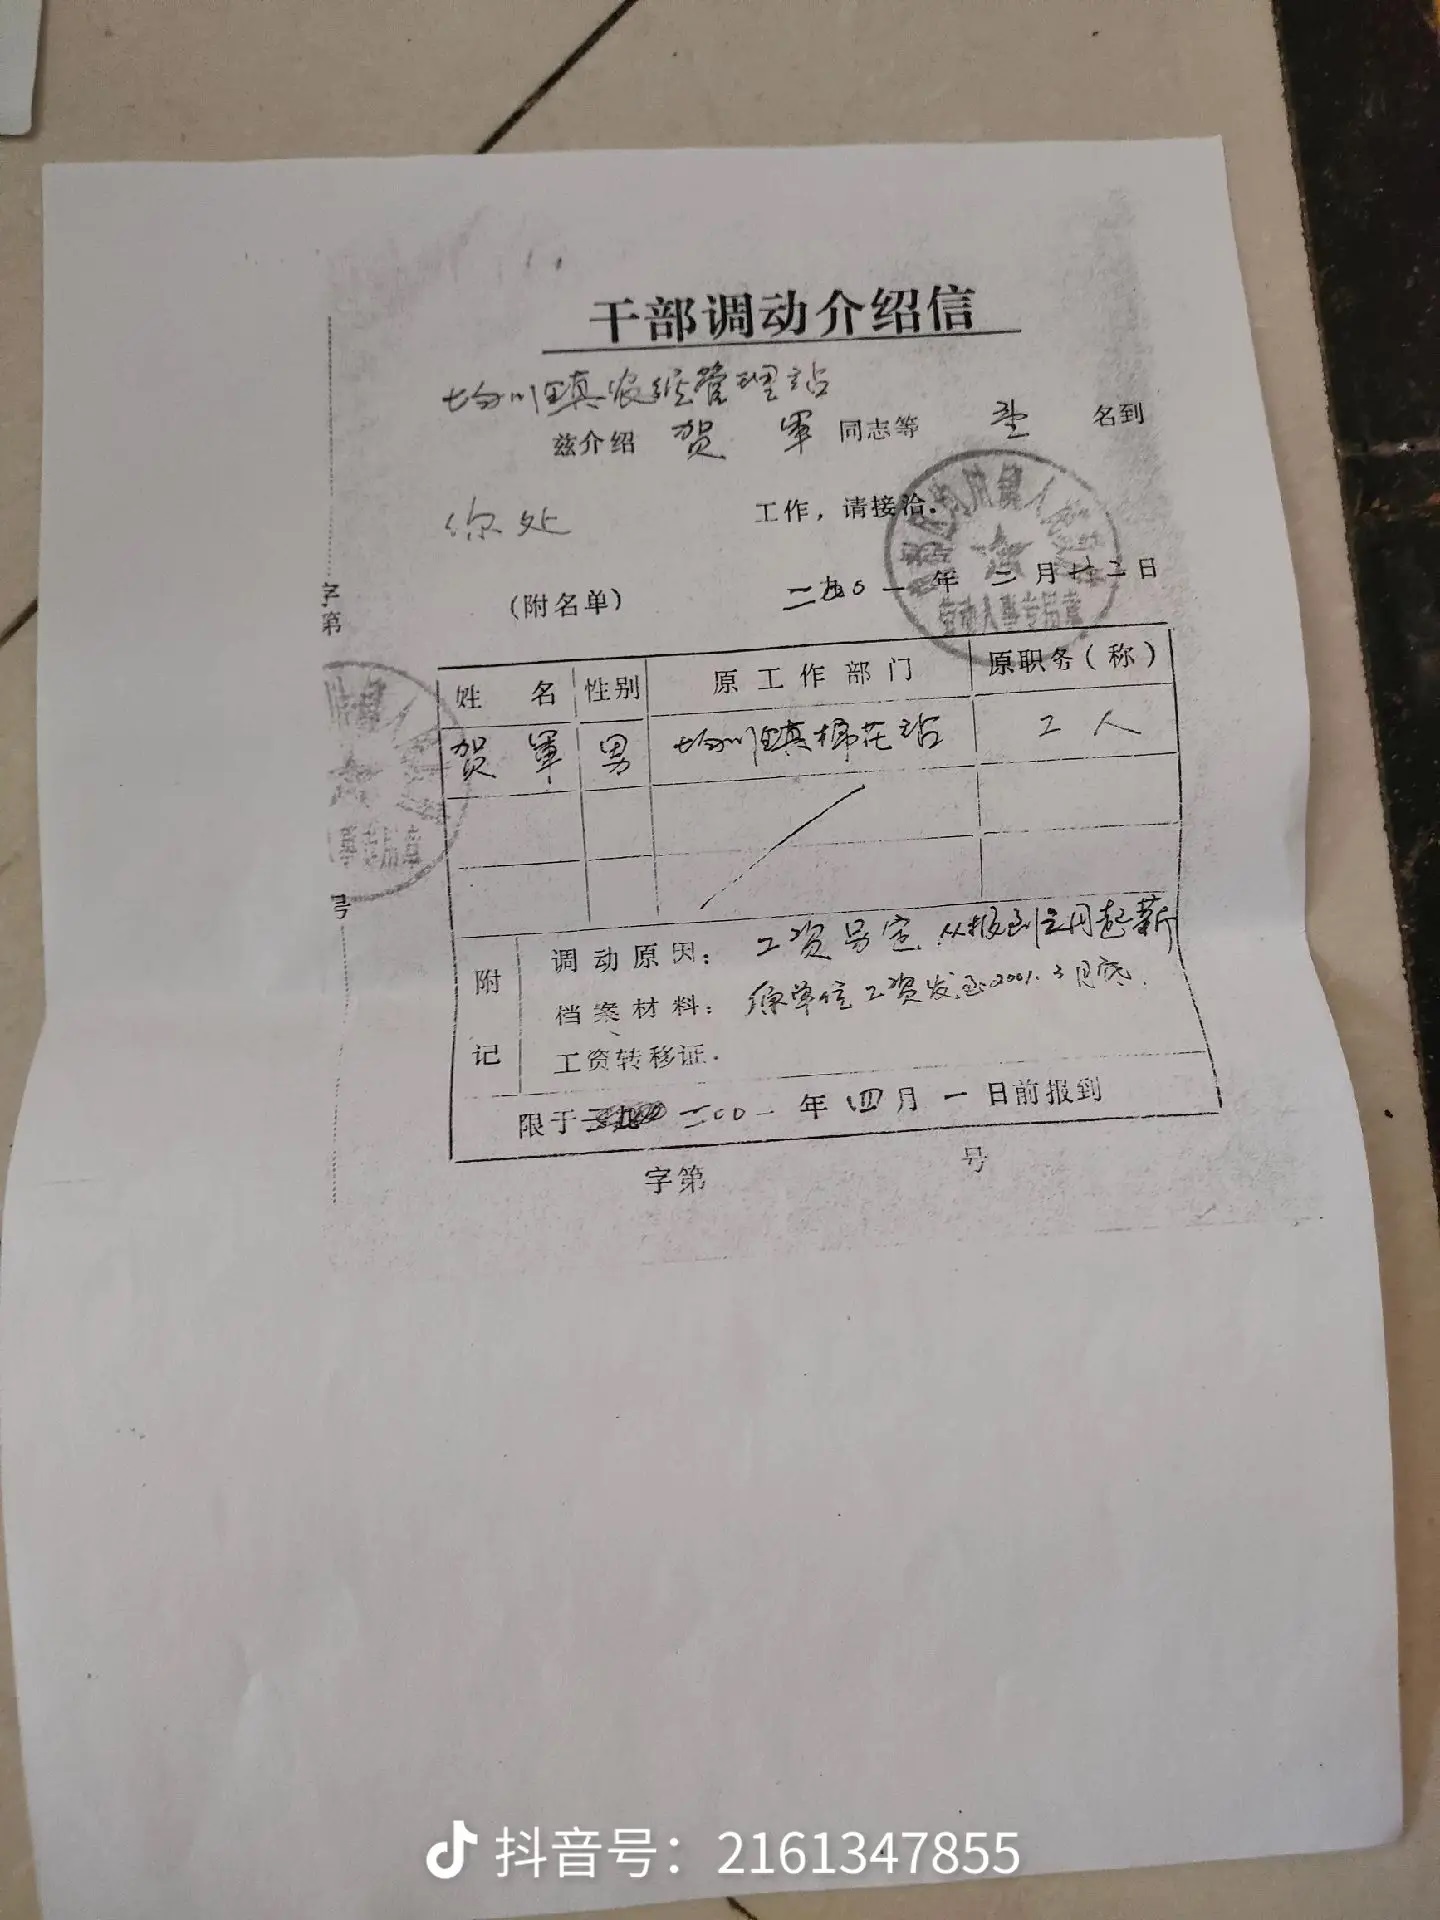 干部调动介绍信
均川镇农经管理站
兹介绍 贺军 同志等 壹 名到
你处 工作，请接洽．
（附名单） 二00一年三月廿二日
劳动人事专用章
字第
姓名 性别 原工作部门 原职务（称）
贺军 男 均川镇棉花站 工人
人事专用章
号
附记
调动原因： 工资另定，从报到之月起薪
档案材料： 原单位工资发至2001.3月底．
工资转移证．
限于 二00一年四月一日前报到
字第 号
抖音号：2161347855